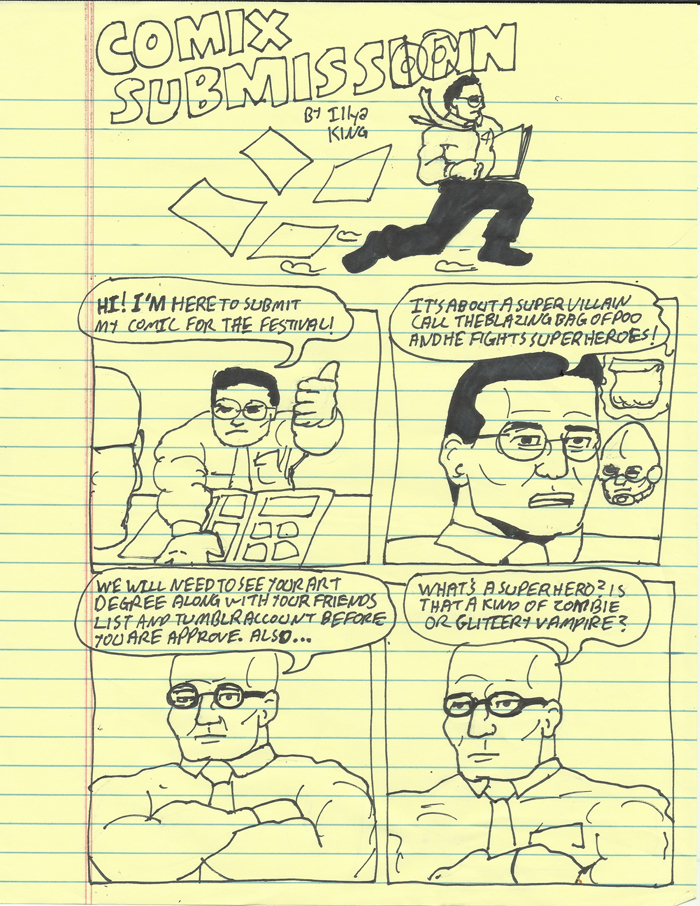 COMIX
SUBMISSION
BY Illya
KING
HI! I'M HERE TO SUBMIT
MY COMIC FOR THE FESTIVAL!
IT'S ABOUT A SUPER VILLAIN
CALL THE BLAZING BAG OF POO
AND HE FIGHTS SUPERHEROES!
WE WILL NEED TO SEE YOUR ART
DEGREE ALONG WITH YOUR FRIENDS
LIST AND TUMBLR ACCOUNT BEFORE
YOU ARE APPROVE. ALSO...
WHAT'S A SUPERHERO? IS
THAT A KIND OF ZOMBIE
OR GLITTERY VAMPIRE?